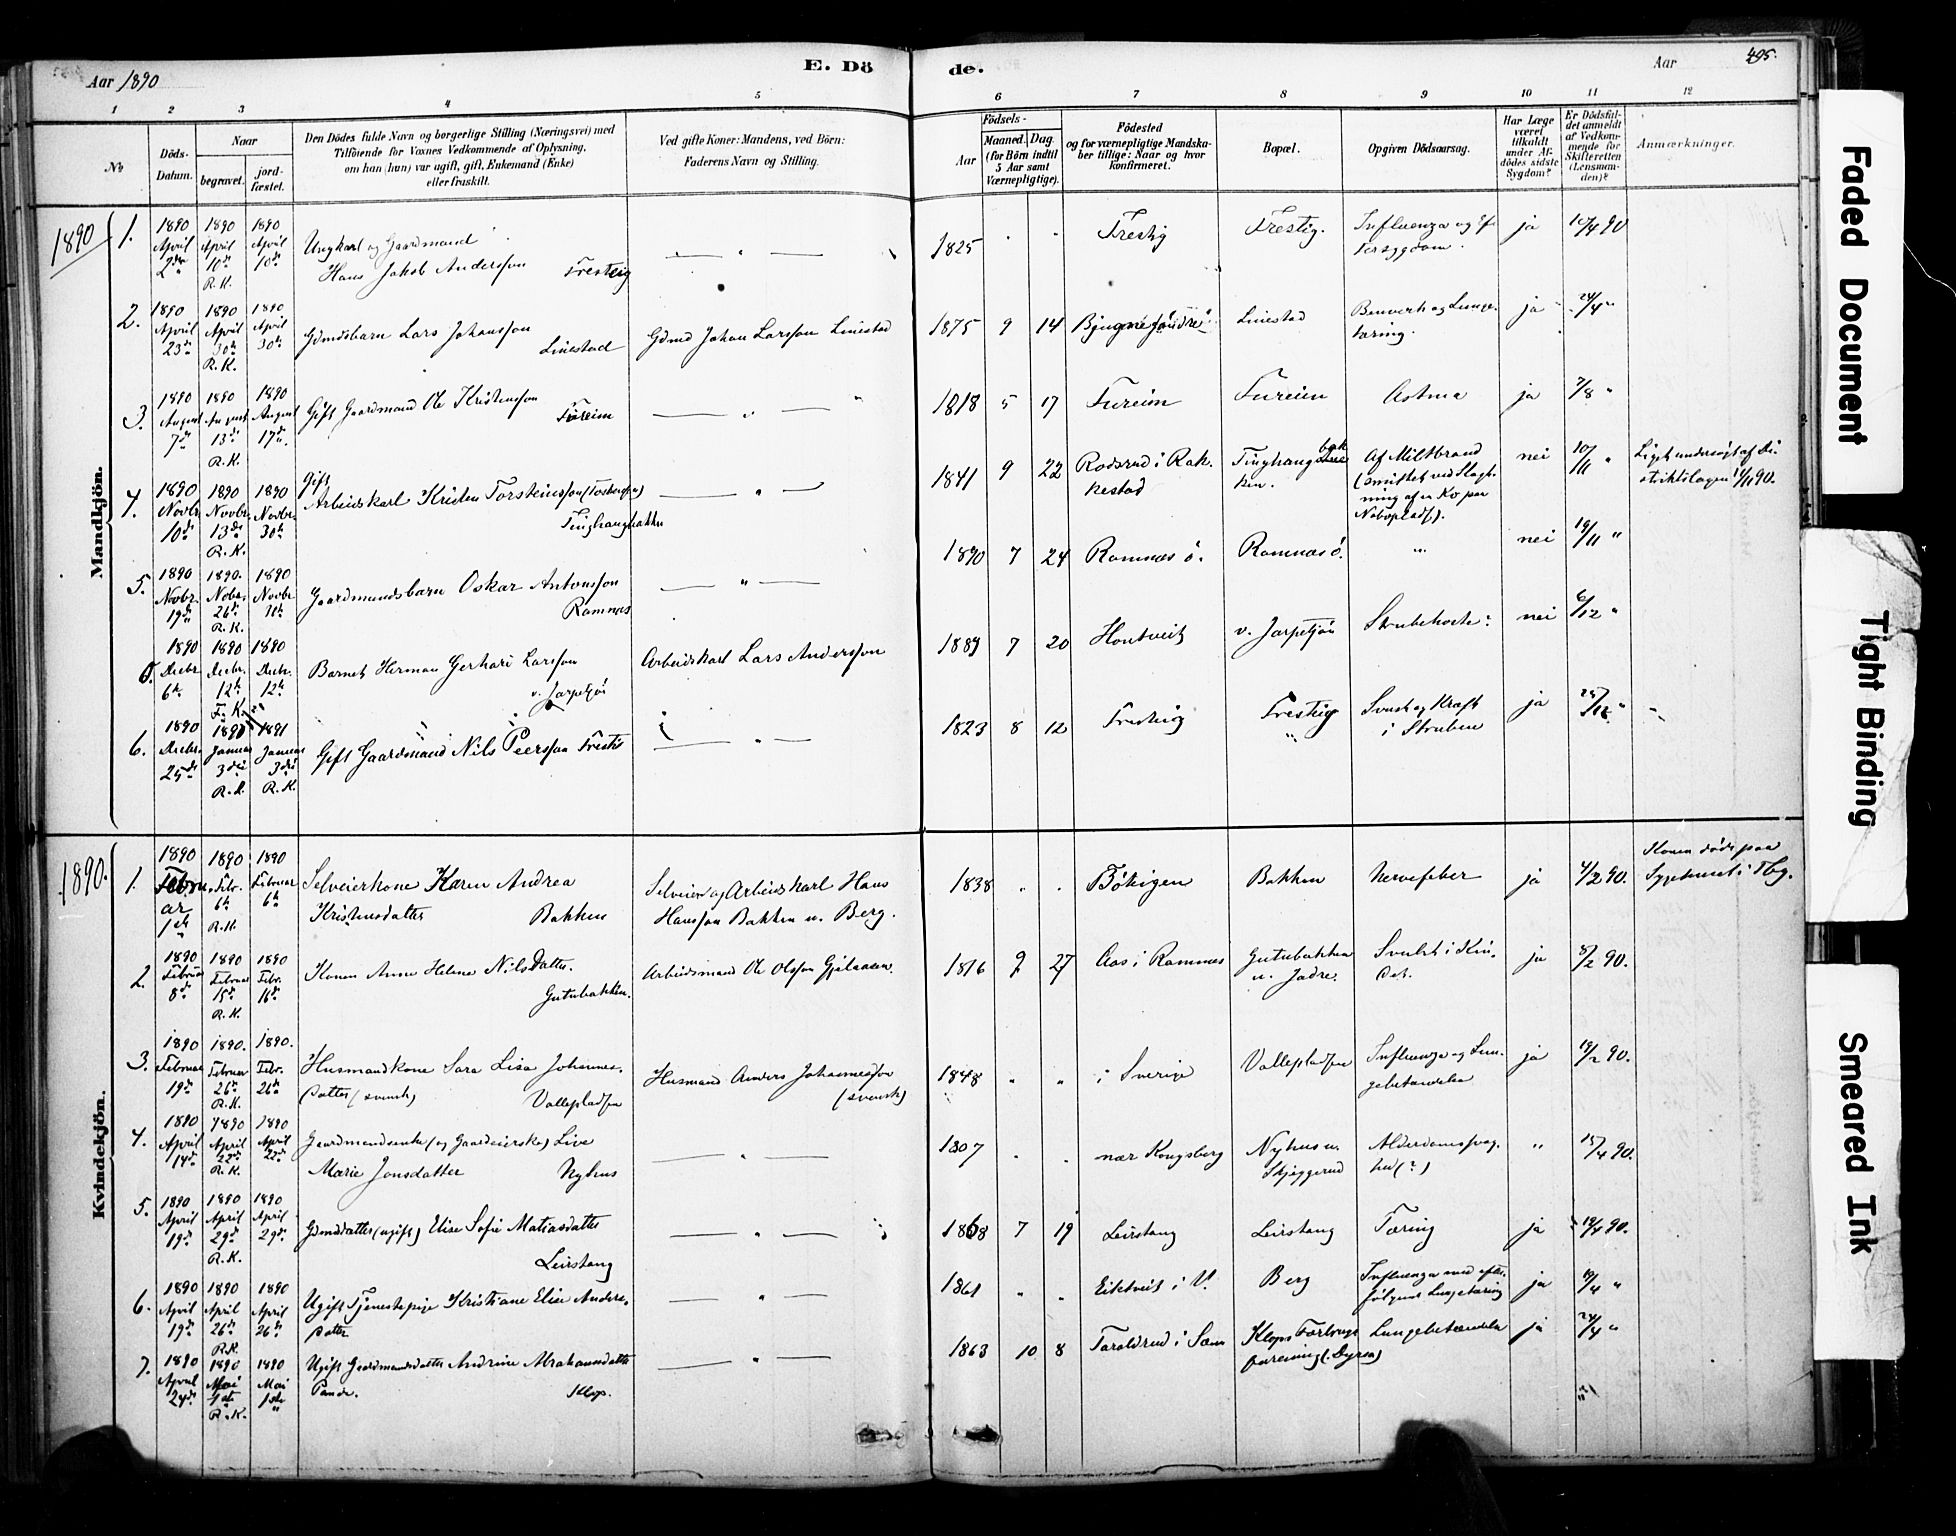 Aar 1890
E. Dö
de.
Aar
495.
1 2 3 4 5 6 7 8 9 10 11 12
No
Döds-
Datum.
Naar
begravet.
jord-
fæstet.
Den Dödes fulde Navn og borgerlige Stilling (Næringsvei) med
Tilföiende for Voxnes Vedkommende af Oplysning,
om han (hun) var ugift, gift, Enkemand (Enke)
eller fraskilt.
Ved gifte Koner: Mandens, ved Börn:
Faderens Navn og Stilling.
Födsels-
Aar
Maaned.
Dag.
(for Börn indtil
5 Aar samt
Værnepligtige).
Födested
og for værnepligtige Mandska-
ber tillige: Naar og hvor
konfirmeret.
Bopæl.
Opgiven Dödsaarsag.
Har Læge
været
tilkaldt
under Af-
dödes sidste
Sygdom?
Er Dödsfal-
det anmeldt
af Vedkom-
mende for
Skifteretten
(Lensman-
den)?
Anmærkninger.
Mandkjön.
1890
1. 1890 April 2den 1890 April 10de R.K. 1890 April 10de
Ungkarl og Gaardmand
Hans Jakob Andersson Frestig
1825 Frestig Frestig. Influenza og Ef
tersygdom. ja 10/4 90
2. 1890 April 23de 1890 April 30te R.K. 1890 April 30te
Gdmdsbarn Lars Johansson
Linestad
Gdmd Johan Larsson Linestad
1875 9 14 Bjugnes söndre Linestad Benverk og Lunge-
tæring. ja 24/4 "
3. 1890 August 7de 1890 August 13de R.K. 1890 August 17de
Gift Gaardmand Ole Kristensson
Fureim
1818 5 17 Fureim Fureim Astma ja 7/8 "
4. 1890 Novbr. 10de 1890 Novbr. 13de R.K. 1890 Novbr. 30te
Gift
Arbeidskarl Kristen Torsteinsson (Tostensson)
Tinghaugbakken
1841 9 22 Rodsrud i Rak-
kestad Tinghaugbak
ken. Af Miltbrand
(smittet ved Slagt-
ning af en Ko paa
Naboplads). nei 10/11 " Liget undersøgt af Di-
striktslægen 11/11 90.
5. 1890 Novbr. 19de 1890. Novbr. 26de R.K. 1890 Novbr.
Gaardmandsbarn Oskar Antonsson
Ramnes
1890 7 24 Ramnes ö. Ramnes ö. nei 19/11 "
6. 1890 Decbr. 6te 1890 Decbr. 12te F.K. 1890 Decbr. 12te
Barnet Herman Gerhard Larsson
v. Jarpetjön
Arbeidskarl Lars Andersson
1889 7 20 Hontveit v. Jarpetjön Strubehoste nei 6/12 "
6. 1890 Decbr. 25de 1891 Januar 3die R.K. 1891 Januar 3die R.K.
Gift Gaardmand Nils Peersson Frestig
1823 8 12 Frestig Frestig Svulst og Kræft
i Struben ja 25/12 "
Kvindekjön.
1890.
1. 1890 Februar 1ste 1890 Febr. 6te R.K. 1890 Februar 6te
Selveierkone Karen Andrea
Kristensdatter Bakken
Selveier og Arbeidskarl Hans
Hansson Bakken u. Berg.
1838 Bökigen Bakken Nervefeber ja 4/2 90. Konen döde paa
Sygehuset i Tbg.
2. 1890 Februar 8de 1890 Februar 15de R.K. 1890 Febr. 16de
Konen Anne Helene NilsDatter.
Gutubakken.
Arbeidsmand Ole Olsson Gjelaasen
1816 9 27 Aas i Ramnes Gutubakken
u. Jadre. Svulst i Kin-
det. ja 8/2 90.
3. 1890 Februar 19de 1890. Februar 26de R.K. 1890. Febr. 26de
Husmandkone Sara Lisa Johannes-
Datter (svensk) Valleplads̄en
Husmand Anders Johannesson
(svensk)
1848 i Sverige Valleplads̄en Influenza og Lun-
gebetændelse ja 19/2 90.
4. 1890 April 14de 1890 April 22de R.K. 1890 April 22de
Gaardmandsenke (og Gaardeierske) Live
Marie Jonsdatter Nyhus
1807 nær Kongsberg Nyhus u.
Skjeggerud Alderdomssvag-
hed (?) " 15/4 90.
5. 1890 April 19de 1890 April 29de R.K. 1890 April 29de
Gdmdsdatter (ugift) Elise Sofie Matiasdatter
Leirstang
1868 7 19 Leirstang Leirstang Tæring ja 19/4 90.
6. 1890 April 19de 1890 April 26de R.K. 1890 April 26de
Ugift Tjenestepige Kristiane Elise Anders-
Datter
1861 Eikeveit i V. Berg Influenza med efter-
fölgende Lungetæring ja 19/4 "
7. 1890 April 24de 1890 Mai 1ste R.K. 1890 Mai 1ste
Ugift Gaardmandsdatter Andrine Abrahamsdatter
Klop.
1863 10 8 Taraldrud i Sæm Klops Lungebetændelse ja 24/4 "
Faded Document
Tight Binding
Smeared Ink